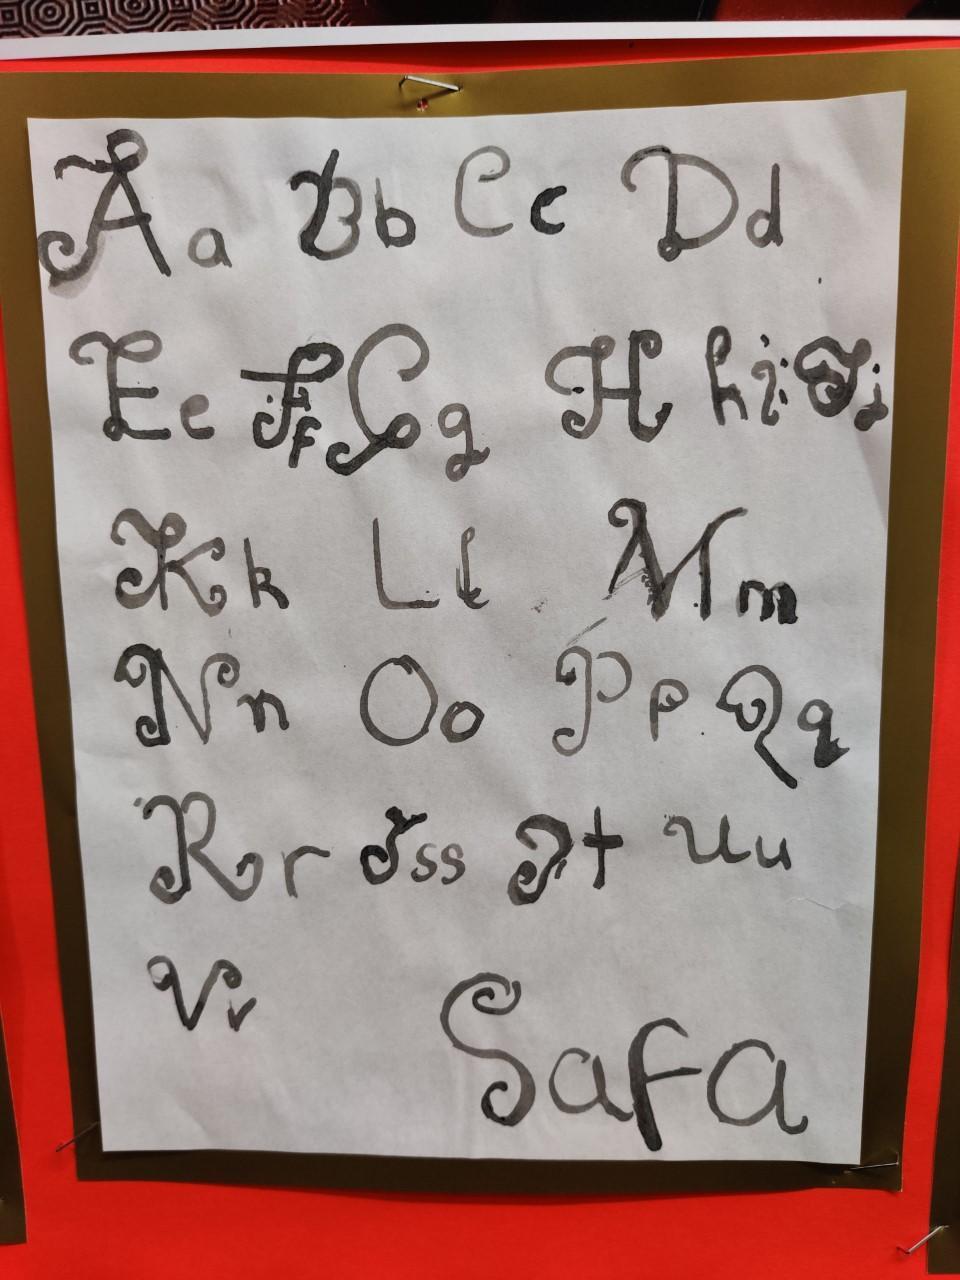 Aa Bb Cc Dd
Ee Ff Gg Hh Ii Jj
Kk Ll Mm
Nn Oo Pp Qq
Rr Sss Tt Uu
Vv
Safa